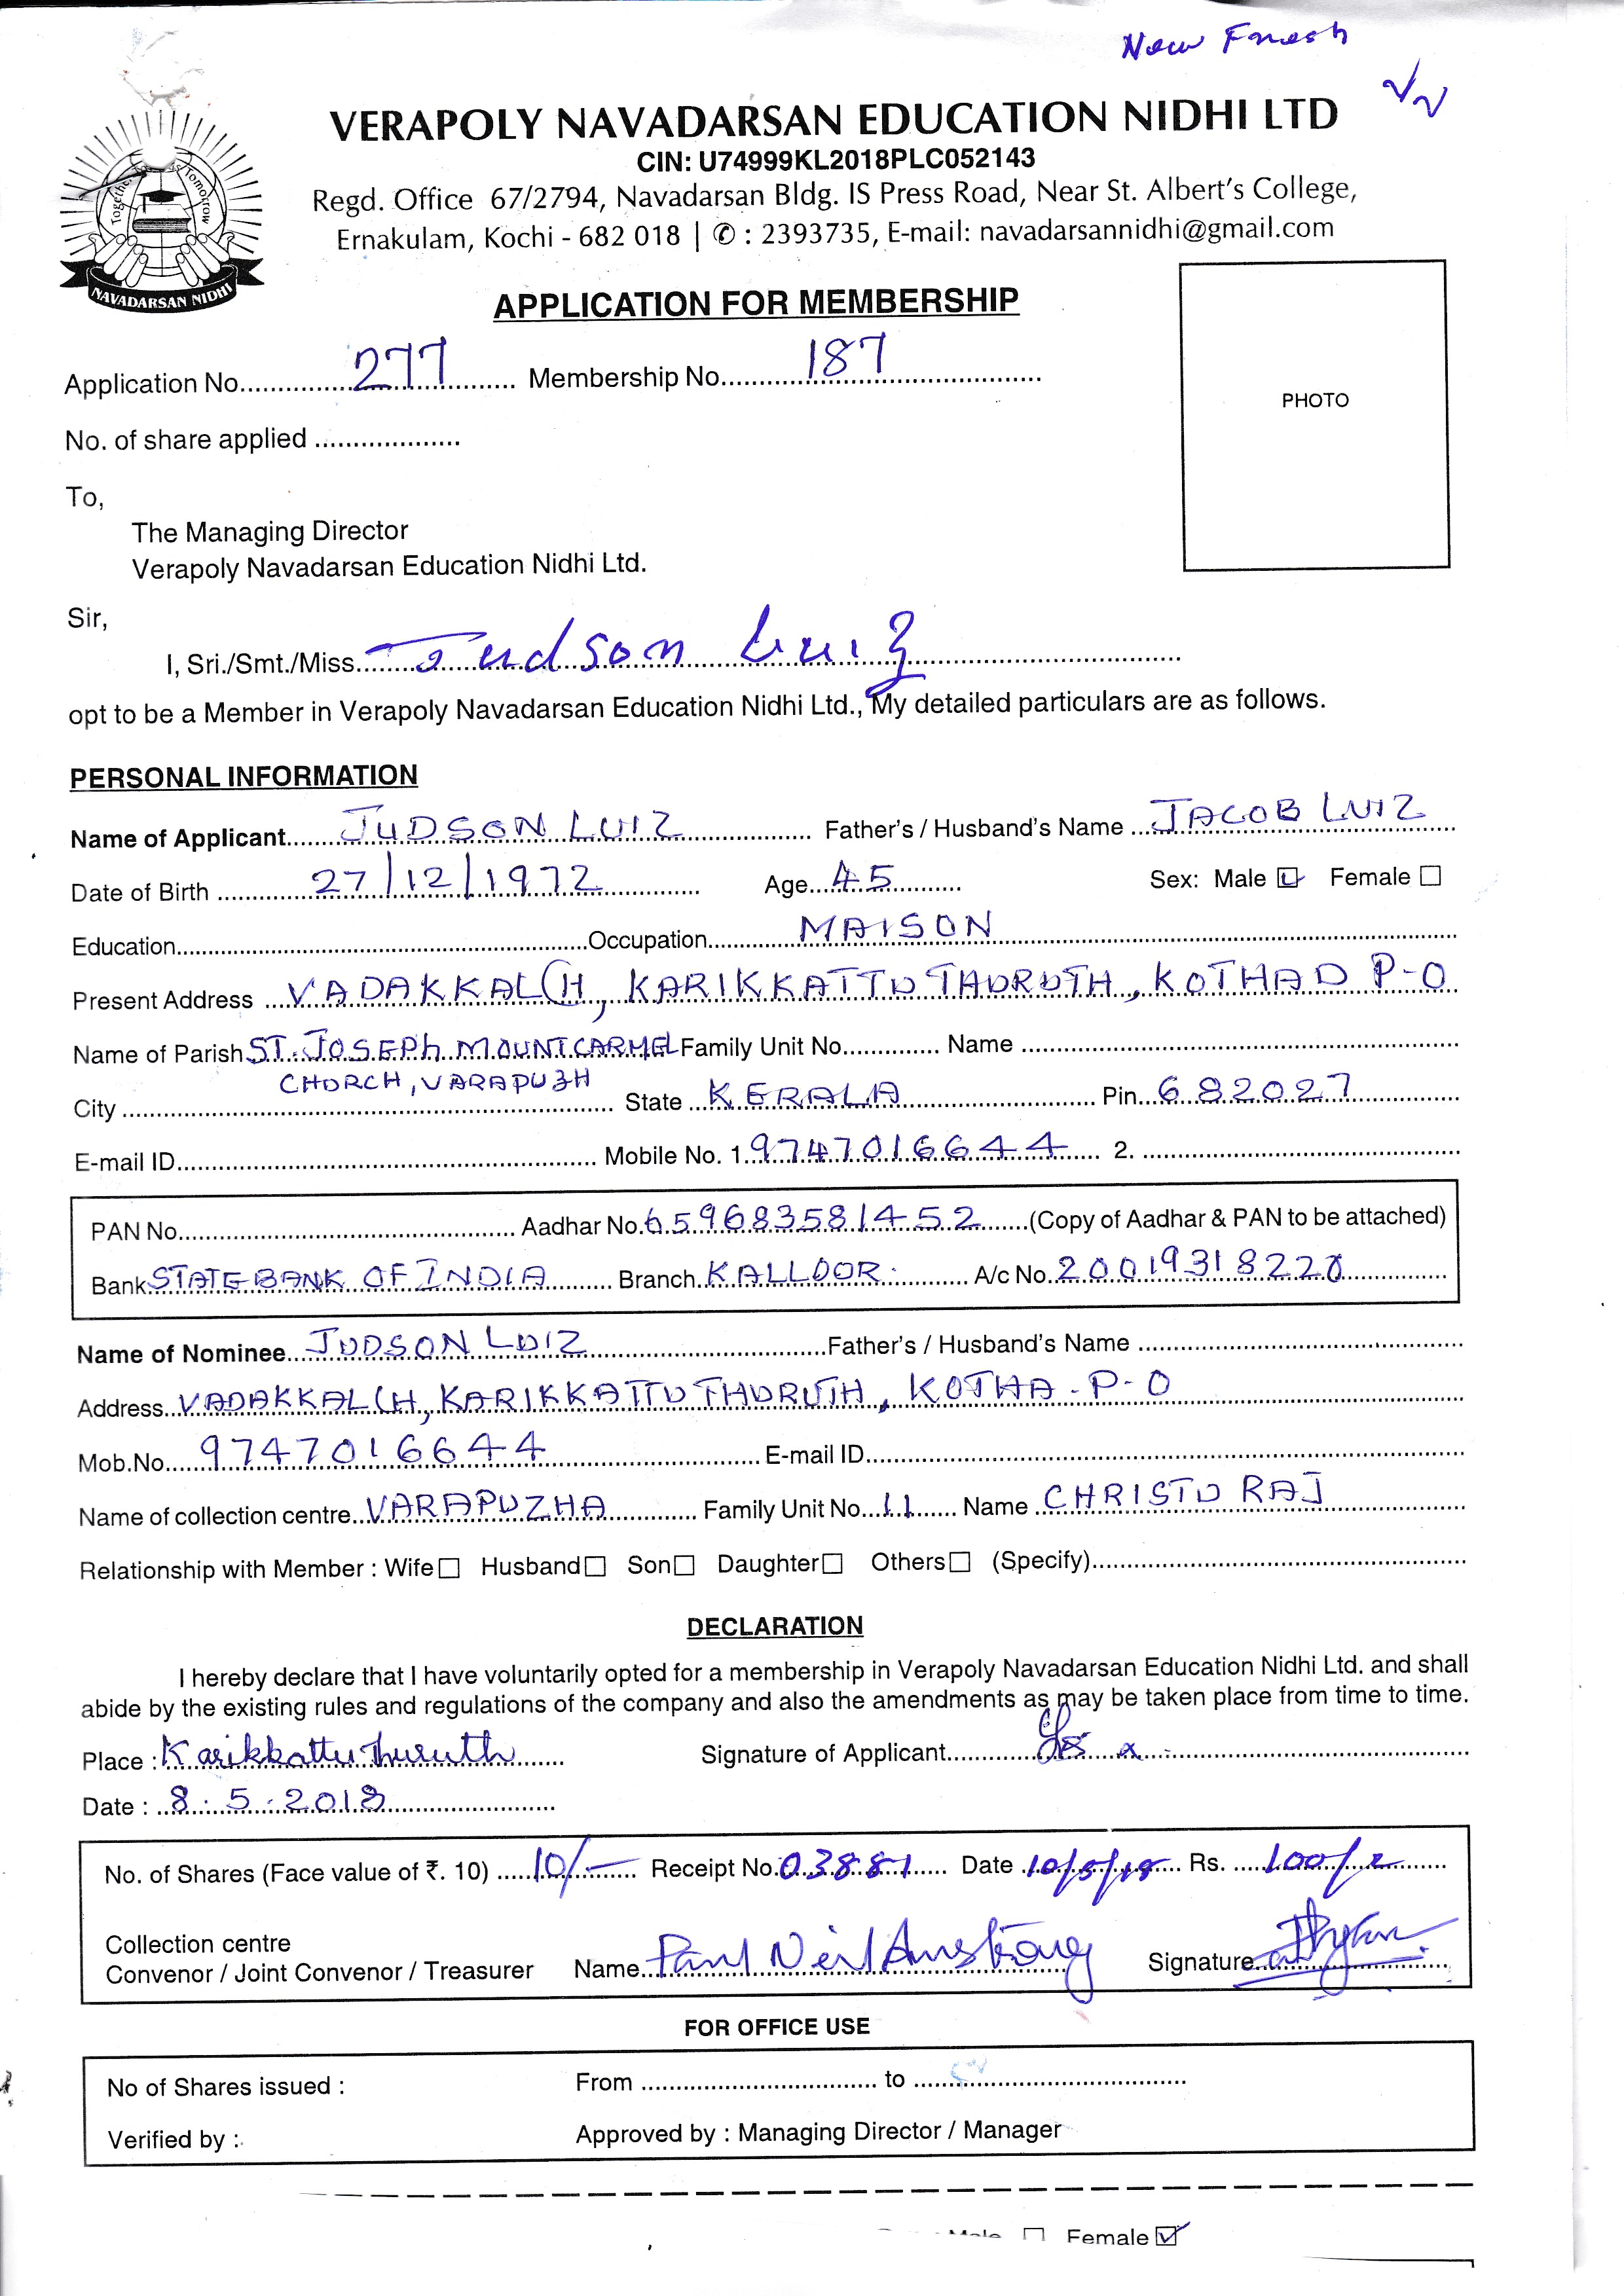 New Fresh
VERAPOLY NAVADARSAN EDUCATION NIDHI LTD
CIN: U74999KL2018PLC052143
Regd. Office 67/2794, Navadarsan Bldg. IS Press Road, Near St. Albert's College,
Ernakulam, Kochi - 682 018 | ✆ : 2393735, E-mail: navadarsannidhi@gmail.com
Together Tomorrow
NAVADARSAN NIDHI
APPLICATION FOR MEMBERSHIP
Application No. 277 Membership No. 187
PHOTO
No. of share applied
To,
The Managing Director
Verapoly Navadarsan Education Nidhi Ltd.
Sir,
I, Sri./Smt./Miss. Judson Luiz
opt to be a Member in Verapoly Navadarsan Education Nidhi Ltd., My detailed particulars are as follows.
PERSONAL INFORMATION
Name of Applicant JUDSON LUIZ Father's / Husband's Name JACOB LUIZ
Date of Birth 27/12/1972 Age 45 Sex: Male ☑ Female ☐
Education Occupation MAISON
Present Address VADAKKAL(H), KARIKKATTU THURUTH, KOTHAD P-O
Name of Parish ST. JOSEPH MOUNT CARMEL Family Unit No. Name
CHURCH, VARAPUZH
City State KERALA Pin 682027
E-mail ID Mobile No. 1. 9747016644 2.
PAN No. Aadhar No. 659683581452 (Copy of Aadhar & PAN to be attached)
Bank STATE BANK OF INDIA Branch KALLOOR. A/c No. 20019318220
Name of Nominee JUDSON LUIZ Father's / Husband's Name
Address VADAKKAL(H, KARIKKATTU THURUTH, KOTHA-P-O
Mob.No. 9747016644 E-mail ID
Name of collection centre VARAPUZHA Family Unit No. 11 Name CHRISTU RAJ
Relationship with Member : Wife ☐ Husband ☐ Son ☐ Daughter ☐ Others ☐ (Specify)
DECLARATION
I hereby declare that I have voluntarily opted for a membership in Verapoly Navadarsan Education Nidhi Ltd. and shall
abide by the existing rules and regulations of the company and also the amendments as may be taken place from time to time.
Place : Karikkattu thuruth Signature of Applicant
Date : 8.5.2018
No. of Shares (Face value of ₹. 10) 10/- Receipt No. 03881 Date 10/5/18 Rs. 100/-
Collection centre
Convenor / Joint Convenor / Treasurer Name Paul Neil Amstrong Signature
FOR OFFICE USE
No of Shares issued : From to
Verified by : Approved by : Managing Director / Manager
Male ☐ Female ☑